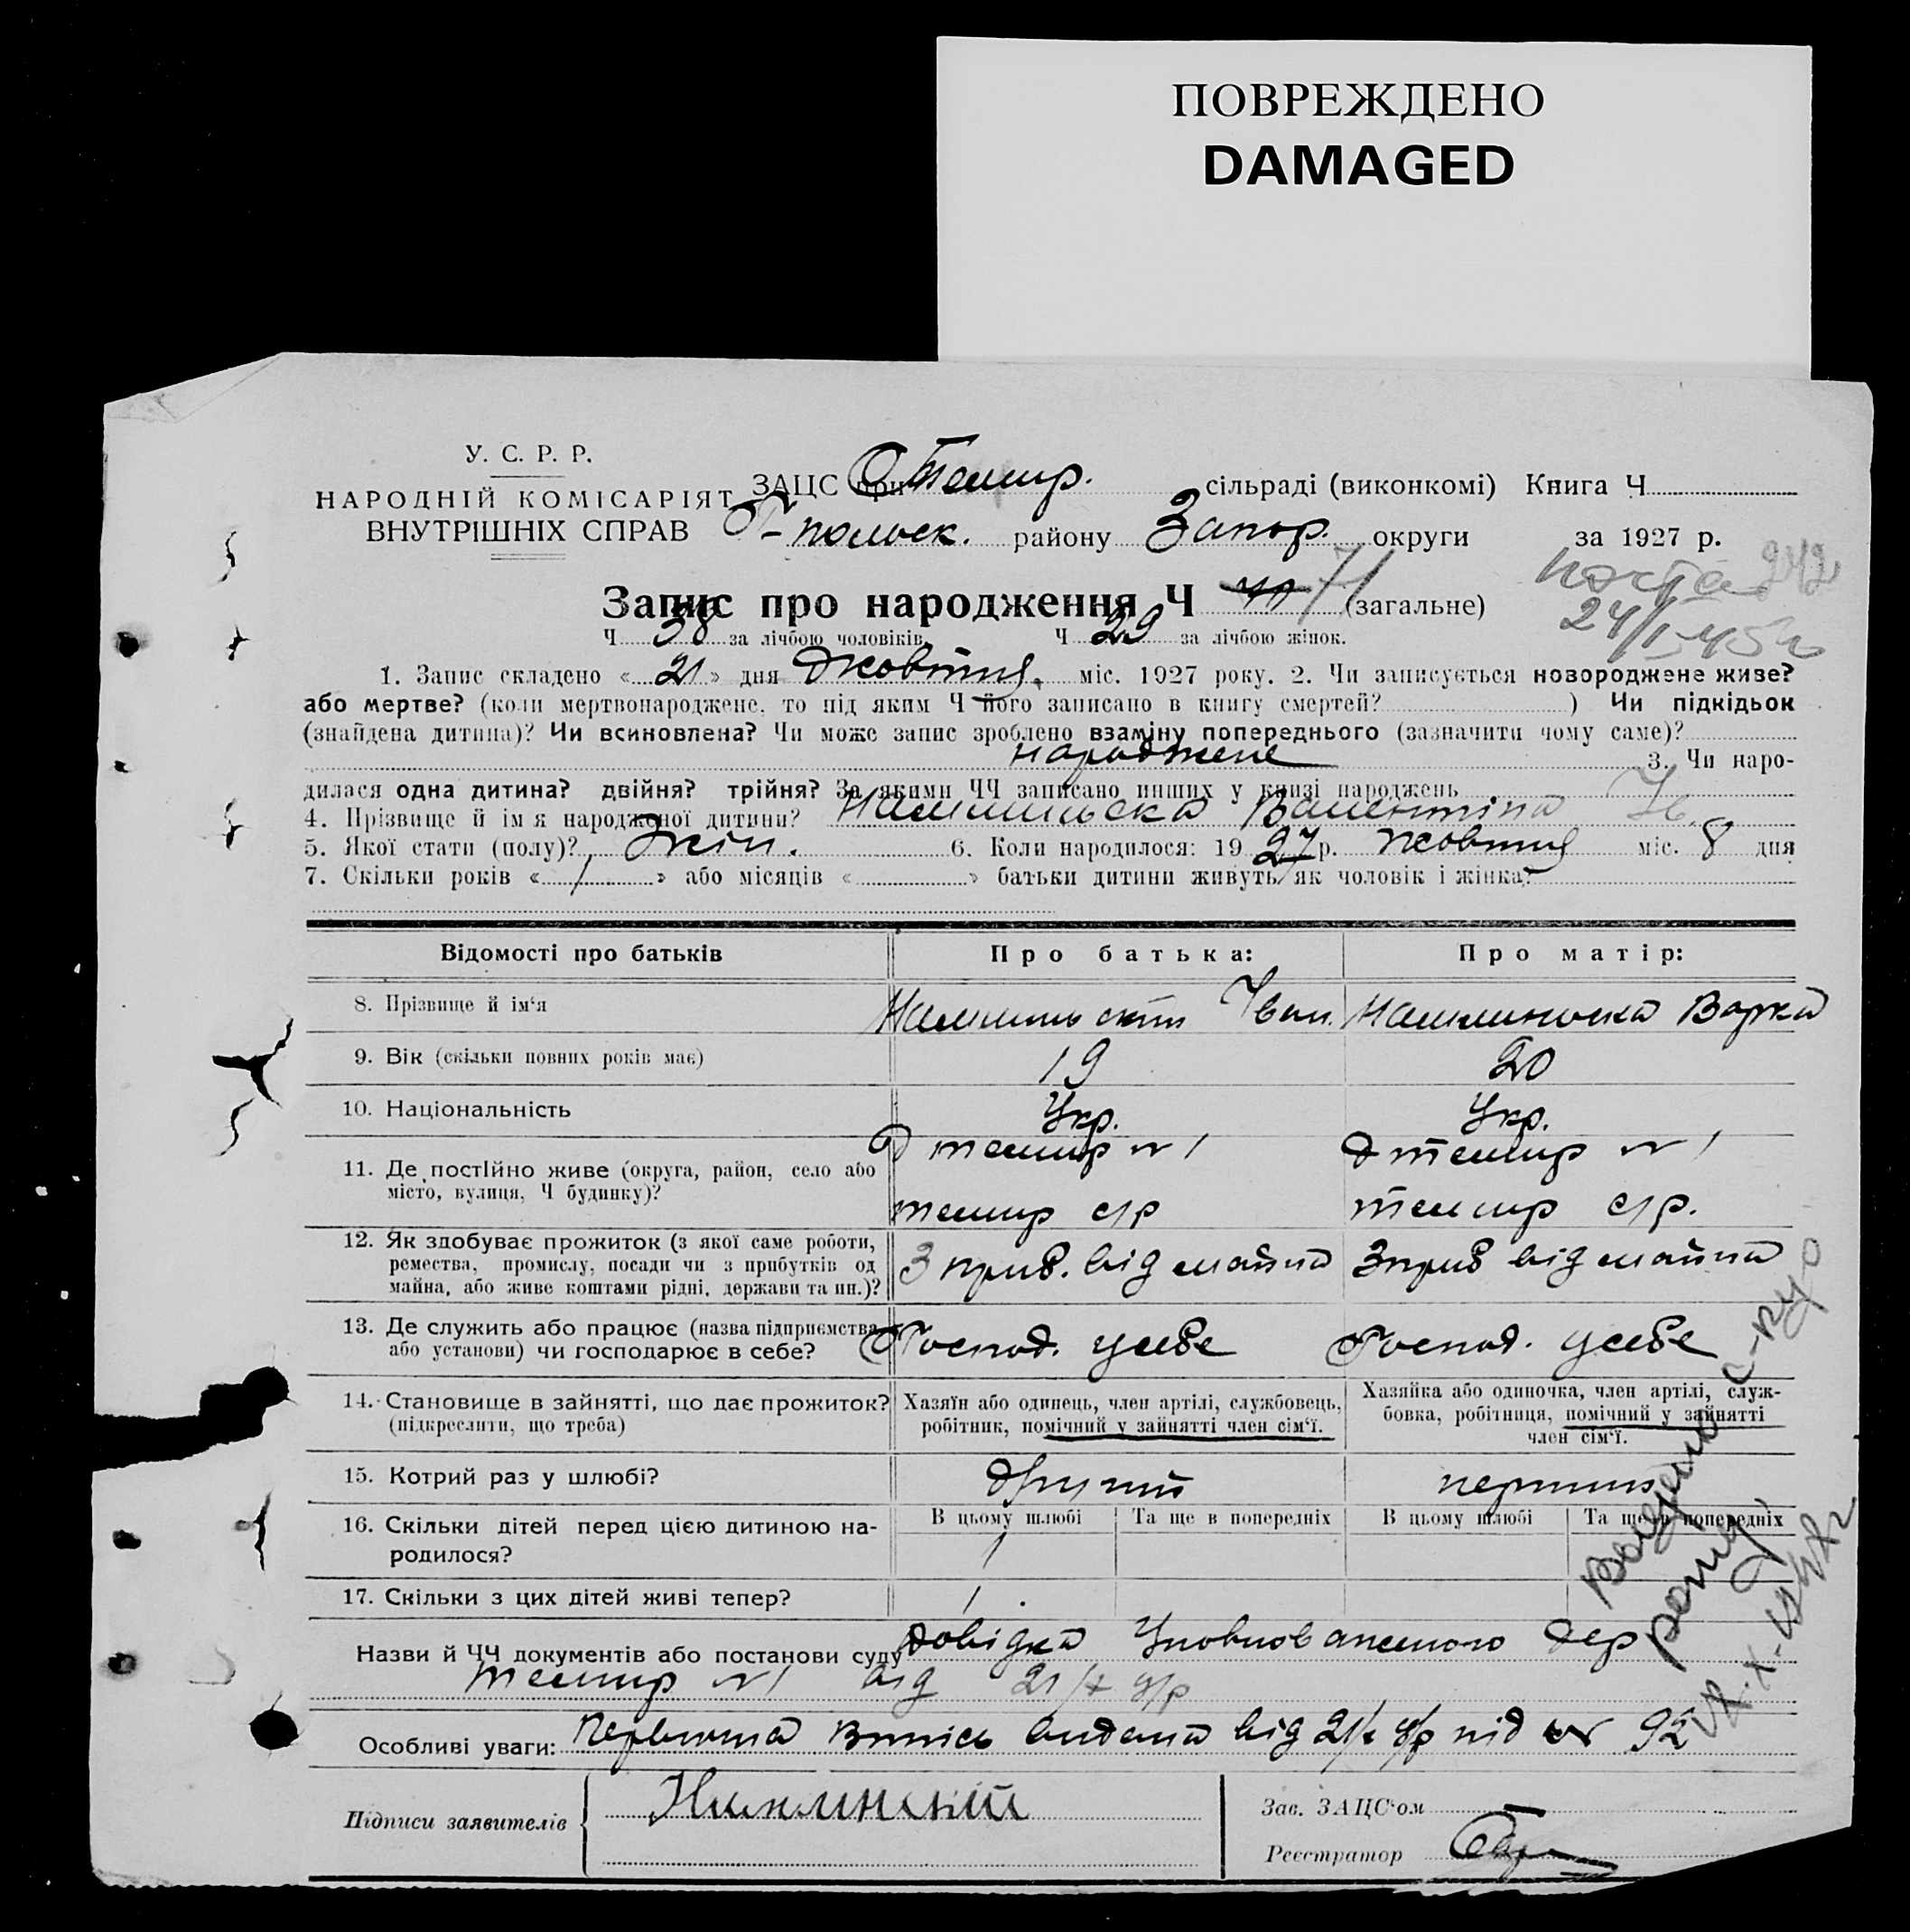 ПОВРЕЖДЕНО
DAMAGED
У. С. Р. Р.
НАРОДНІЙ КОМІСАРІЯТ
ВНУТРІШНІХ СПРАВ
ЗАЦС при Темир. сільраді (виконкомі) Книга Ч
району Запор. округи за 1927 р.
Запис про народження Ч 71 (загальне)
24/I-45
Ч 38 за лічбою чоловіків. Ч 29 за лічбою жінок.
1. Запис складено « 21 » дня Жовтня міс. 1927 року. 2. Чи записується новороджене живе?
або мертве? (коли мертвонароджене, то під яким Ч його записано в книгу смертей? ) Чи підкідьок
(знайдена дитина)? Чи всиновлена? Чи може запис зроблено взаміну попереднього (зазначити чому саме)?
народжене 3. Чи наро-
дилася одна дитина? двійня? трійня? За якими ЧЧ записано инших у книзі народжень
4. Прізвище й ім'я народженої дитини? Валентіна
5. Якої стати (полу)? Жін. 6. Коли народилося: 1927 р. жовтня міс. 8 дня
7. Скільки років « 1 » або місяців « » батьки дитини живуть як чоловік і жінка?
Відомості про батьків Про батька: Про матір:
8. Прізвище й ім'я Іван. Варка
9. Вік (скільки повних років має) 19 20
10. Національність Укр. Укр.
11. Де постійно живе (округа, район, село або місто, вулиця, Ч будинку)? темир № 1 темир № 1
темир с/р темир с/р.
12. Як здобуває прожиток (з якої саме роботи, ремества, промислу, посади чи з прибутків од майна, або живе коштами рідні, держави та ин.)? З приб. від майна З приб від майна
13. Де служить або працює (назва підприємства або установи) чи господарює в себе? Господ. у себе Господ. у себе
14. Становище в зайнятті, що дає прожиток? (підкреслити, що треба)
Хазяїн або одинець, член артілі, службовець, робітник, помічний у зайнятті член сім'ї.
Хазяйка або одиночка, член артілі, служ-бовка, робітниця, помічний у зайнятті член сім'ї.
15. Котрий раз у шлюбі? другий перший
16. Скільки дітей перед цією дитиною на-родилося?
В цьому шлюбі Та ще в попередніх В цьому шлюбі Та ще в попередніх
1
17. Скільки з цих дітей живі тепер? 1
Назви й ЧЧ документів або постанови суду довідка Уповноваженого дер
темир № 1 від 21/X ц/р
Особливі уваги: Первісна випісь видана від 21/X ц/р під № 92
Підписи заявителів
Зав. ЗАЦС'ом
Реєстратор